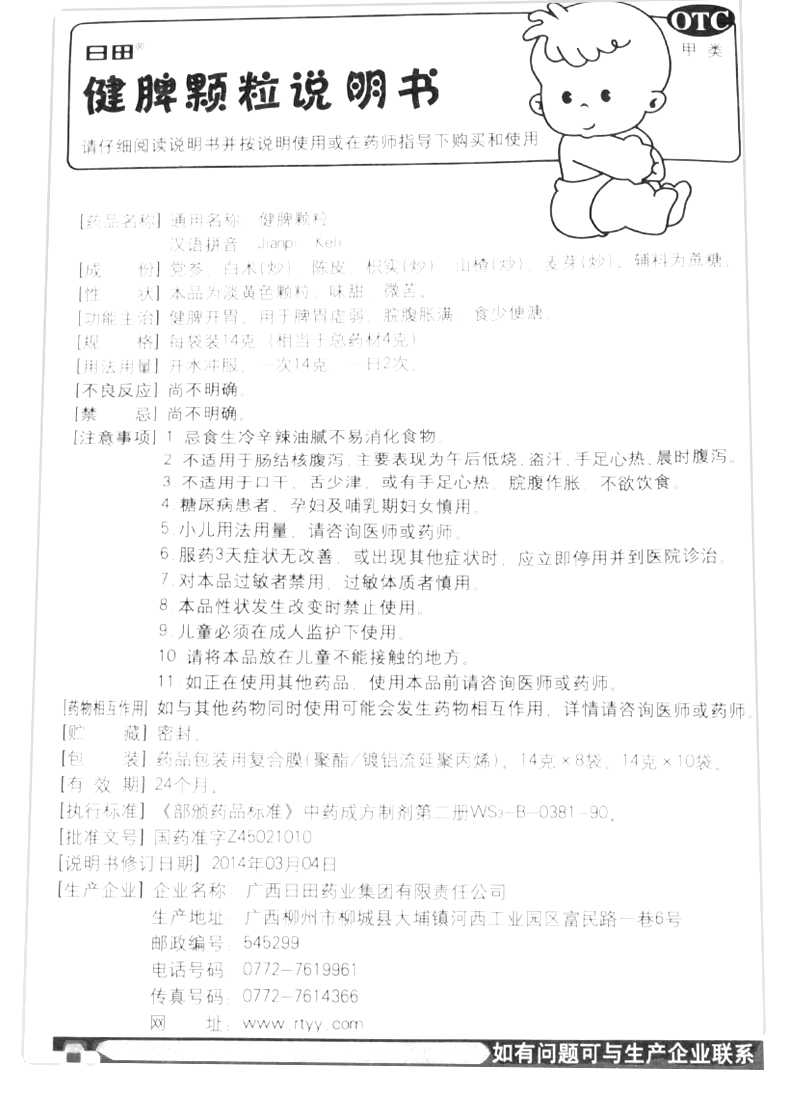 日田®
OTC
甲类
健脾颗粒说明书
请仔细阅读说明书并按说明使用或在药师指导下购买和使用
[药品名称] 通用名称 健脾颗粒
汉语拼音 Jianpi Keli
[成 份] 党参、白术(炒)、陈皮、枳实(炒)、山楂(炒)、麦芽(炒)。辅料为蔗糖。
[性 状] 本品为淡黄色颗粒，味甜、微苦。
[功能主治] 健脾开胃。用于脾胃虚弱，脘腹胀满，食少便溏。
[规 格] 每袋装14克（相当于总药材4克）
[用法用量] 开水冲服，一次14克，一日2次。
[不良反应] 尚不明确。
[禁 忌] 尚不明确。
[注意事项] 1 忌食生冷辛辣油腻不易消化食物。
2 不适用于肠结核腹泻,主要表现为午后低烧,盗汗,手足心热,晨时腹泻。
3 不适用于口干、舌少津，或有手足心热，脘腹作胀，不欲饮食。
4 糖尿病患者、孕妇及哺乳期妇女慎用。
5.小儿用法用量，请咨询医师或药师。
6.服药3天症状无改善，或出现其他症状时，应立即停用并到医院诊治。
7.对本品过敏者禁用，过敏体质者慎用。
8 本品性状发生改变时禁止使用。
9.儿童必须在成人监护下使用。
10 请将本品放在儿童不能接触的地方。
11 如正在使用其他药品，使用本品前请咨询医师或药师。
[药物相互作用] 如与其他药物同时使用可能会发生药物相互作用，详情请咨询医师或药师。
[贮 藏] 密封。
[包 装] 药品包装用复合膜(聚酯/镀铝流延聚丙烯)，14克×8袋、14克×10袋。
[有 效 期] 24个月。
[执行标准] 《部颁药品标准》中药成方制剂第二册WS₃-B-0381-90。
[批准文号] 国药准字Z45021010
[说明书修订日期] 2014年03月04日
[生产企业] 企业名称 广西日田药业集团有限责任公司
生产地址 广西柳州市柳城县大埔镇河西工业园区富民路一巷6号
邮政编号：545299
电话号码 0772-7619961
传真号码：0772-7614366
网 址：www.rtyy.com
如有问题可与生产企业联系